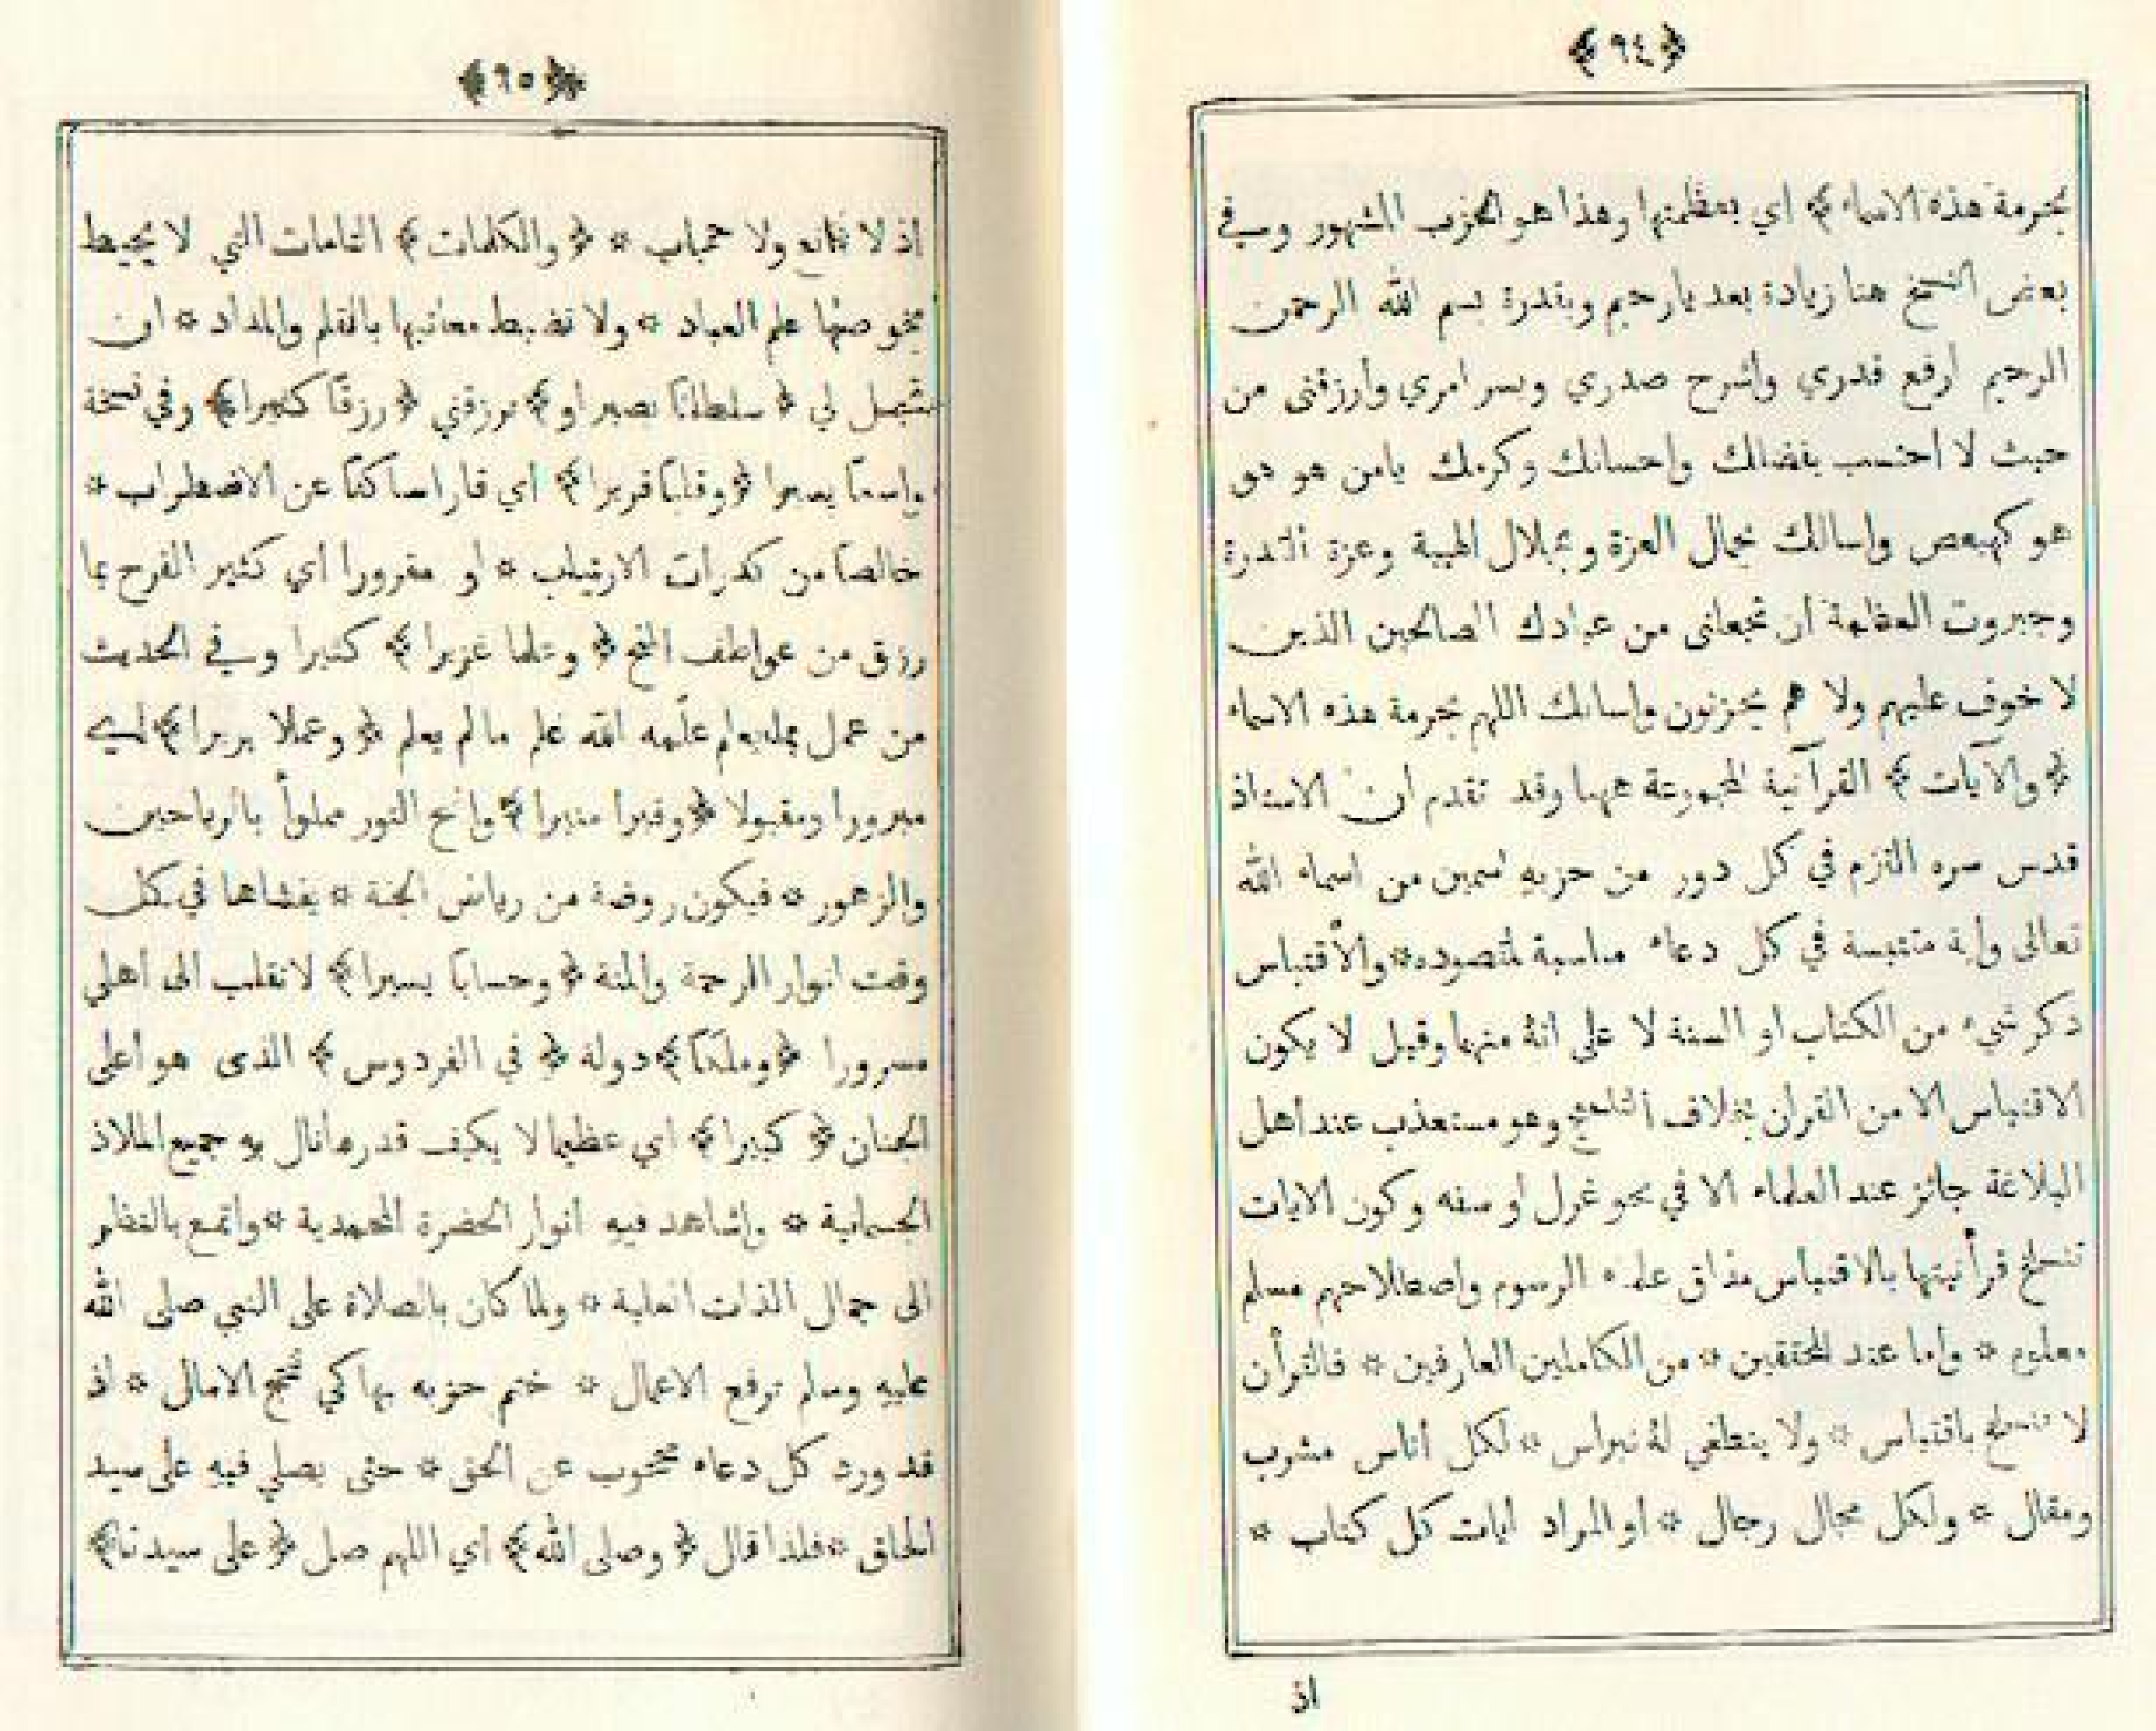 ﴿٩٤﴾
بحرمة هذه الاسماء ﴾ اي بعظمتها وهذا هو الحزب المشهور وفي
بعض النسخ هنا زيادة بعد يارحيم وبقدرة بسم الله الرحمن
الرحيم أرفع قدري واشرح صدري ويسر امري وأرزقني من
حيث لا احتسب بفضلك واحسانك وكرمك يامن هو هو
هو كهيعص واسالك بجمال العزة وبجلال الهيبة وعزة القدرة
وجبروت العظمة ان تجعلني من عبادك الصالحين الذين
لا خوف عليهم ولا هم يحزنون واسالك اللهم بحرمة هذه الاسماء
﴿ والآيات ﴾ القرآنية المجموعة معها وقد تقدم ان الاستاذ
قدس سره التزم في كل دور من حزبه اسمين من اسماء الله
تعالى واية مقتبسة في كل دعاء مناسبة لمقصوده * والأقتباس
ذكر شيء من الكتاب او السنة لا على انهٔ منهما وقيل لا يكون
الاقتباس الا من القران بخلاف التلميح وهو مستعذب عند اهل
البلاغة جائز عند العلماء الا في نحو غزل او سفه وكون الايات
تنسلخ قرأنيتها بالاقتباس مذاق علماء الرسوم واصطلاحهم مسلم
معلوم * واما عند المحققين * من الكاملين العارفين * فالقرأن
لا تنسلخ باقتباس * ولا ينطفي لهٔ نبراس * لكل أناس مشرب
ومقال * ولكل مجال رجال * او المراد ايات كل كتاب *
اذ
﴿٩٥﴾
اذ لا مانع ولا حجاب * ﴿ والكلمات ﴾ التامات التي لا يحيط
بخوصها علم العباد * ولا تضبط معانيها بالقلم والمداد * ان
تجعل لي ﴿ سلطانًا نصيرا و﴾ ترزقني ﴿ رزقًا كثيرا ﴾ وفي نسخة
واسعًا يسيرا ﴿ وقلبًا قريرا ﴾ اي قارا ساكنًا عن الاضطراب *
خالصًا من كدرات الارتياب * او مقرورا اي كثير الفرح بما
رزق من عواطف المنح ﴿ وعلما غزيرا ﴾ كثيرا وفي الحديث
من عمل بما يعلم علّمه الله علم ما لم يعلم ﴿ وعملا بريرا ﴾ اي
مبرورا ومقبولا ﴿ وقبرا منيرا ﴾ واضح النور مملوأ بالرياحين
والزهور * فيكون روضة من رياض الجنة * يغشاها في كل
وقت انوار الرحمة والمنة ﴿ وحسابًا يسيرا ﴾ لانقلب الى اهلي
مسرورا ﴿ وملكًا ﴾ دولة ﴿ في الفردوس ﴾ الذي هو اعلى
الجنان ﴿ كبيرا ﴾ اي عظيما لا يكيف قدره انال به جميع الملاذ
الجسمانية * واشاهد فيه انوار الحضرة المحمدية * واتمتع بالنظر
الى جمال الذات العلية * ولما كان بالصلاة على النبي صلى الله
عليه وسلم ترفع الاعمال * ختم حزبه بها كي تنجح الامال * اذ
قد ورد كل دعاء محجوب عن الحق * حتى يصلي فيه على سيد
الخلق * فلذا قال ﴿ وصلى الله ﴾ اي اللهم صل ﴿ على سيدنا ﴾